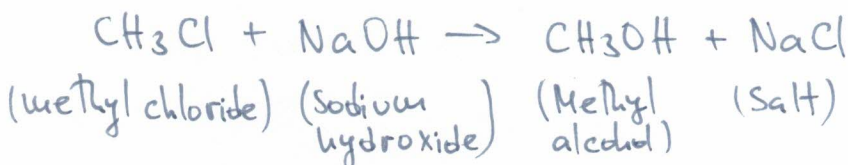 CH₃Cl + NaOH → CH₃OH + NaCl
(methyl chloride) (Sodium hydroxide) (Methyl alcohol) (Salt)